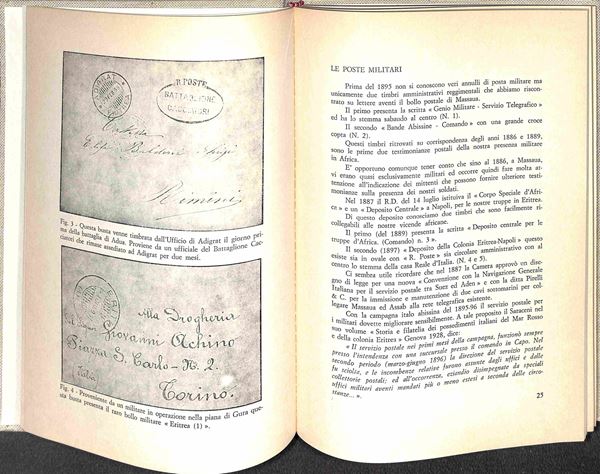 ADIGRAT
R. POSTE
BATTAGLIONE
CACCIATORI
Rimini
Fig. 3 - Questa busta venne timbrata dall'Ufficio di Adigrat il giorno pri-
ma della battaglia di Adua. Proviene da un ufficiale del Battaglione Cac-
ciatori che rimase assediato ad Adigrat per due mesi.
Alla Drogheria
Giovanni Achino
Piazza S. Carlo - N. 2.
Torino.
Italia
Fig. 4 - Proveniente da un militare in operazione nella piana di Gura que-
sta busta presenta il raro bollo militare « Eritrea (1) ».
LE POSTE MILITARI
Prima del 1895 non si conoscono veri annulli di posta militare ma
unicamente due timbri amministrativi reggimentali che abbiamo riscon-
trato su lettere aventi il bollo postale di Massaua.
Il primo presenta la scritta « Genio Militare - Servizio Telegrafico »
ed ha lo stemma sabaudo al centro (N. 1).
Il secondo « Bande Abissine - Comando » con una grande croce
copta (N. 2).
Questi timbri ritrovati su corrispondenze degli anni 1886 e 1889,
sono le prime due testimonianze postali della nostra presenza militare
in Africa.
E' opportuno comunque tener conto che sino al 1886, a Massaua,
vi erano quasi esclusivamente militari ed occorre quindi fare molta at-
tenzione all'indicazione dei mittenti che possono fornire ulteriore testi-
monianza sulla presenza dei nostri soldati.
Nel 1887 il R.D. del 14 luglio istituiva il « Corpo Speciale d'Afri-
ca » e un « Deposito Centrale » a Napoli, per le nostre truppe in Eritrea.
Di questo deposito conosciamo due timbri che sono facilmente ri-
collegabili alle nostre vicende africane.
Il primo (del 1889) presenta la scritta « Deposito centrale per le
truppe d'Africa. (Comando) n. 3 ».
Il secondo (1897) « Deposito della Colonia Eritrea-Napoli » questo
esiste sia in ovale con « R. Poste » sia circolare amministrativo con al
centro lo stemma della casa Reale d'Italia. (N. 4 e 5).
Ci sembra utile ricordare che nel 1887 la Camera approvò un dise-
gno di legge per una nuova « Convenzione con la Navigazione Generale
Italiana per il servizio postale tra Suez ed Aden » e con la ditta Pirelli
& C. per la immissione e manutenzione di due cavi sottomarini per col-
legare Massaua ed Assab alla rete telegrafica esistente.
Con la campagna italo abissina del 1895-96 il servizio postale per
i militari dovette migliorare sensibilmente. A tale proposito il Saraceni nel
suo volume « Storia e filatelia dei possedimenti italiani del Mar Rosso
e della colonia Eritrea » Genova 1928, dice:
« Il servizio postale nei primi mesi della campagna, funzionò sempre
presso l'intendenza con una succursale presso il comando in Capo. Nel
secondo periodo (marzo-giugno 1896) la direzione del servizio postale
fu sciolta, e le incombenze relative furono assunte dagli uffici e dalle
collettorie postali; ed all'occorrenza, eziandio disimpegnate da speciali
uffici militari aventi mandati più o meno estesi a seconda delle circo-
stanze... ».
25